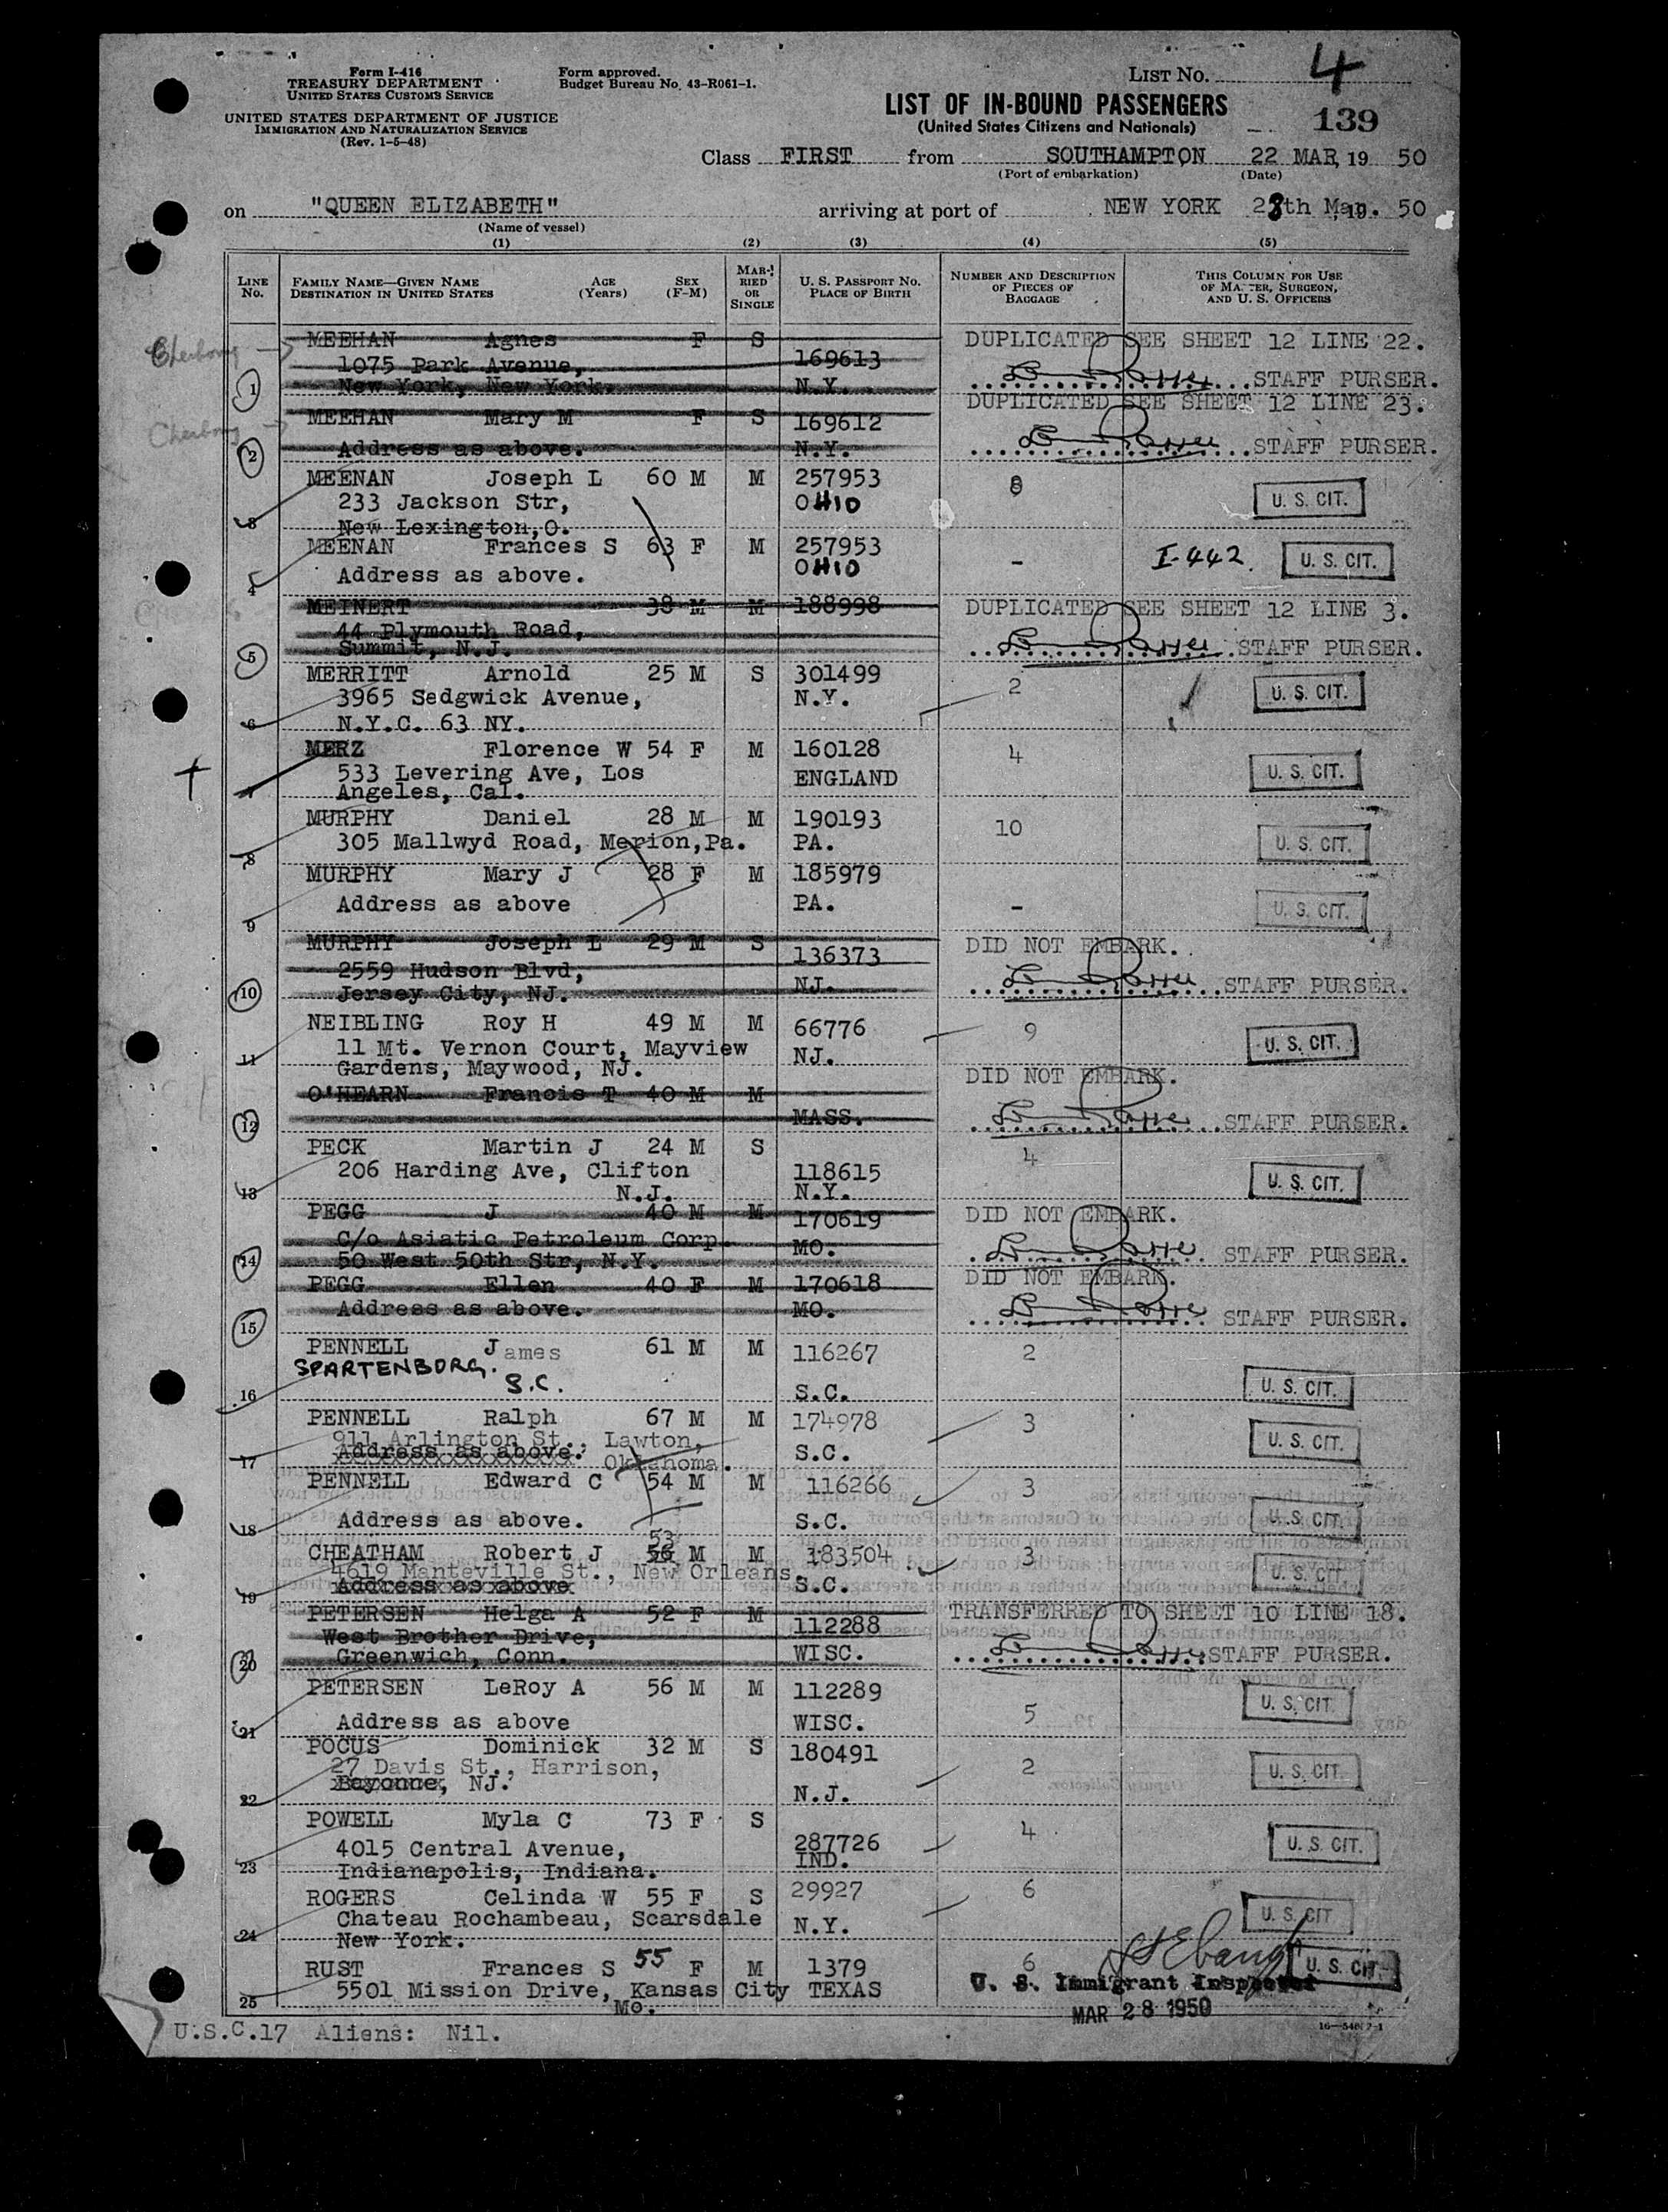 Form I-416
TREASURY DEPARTMENT
UNITED STATES CUSTOMS SERVICE
UNITED STATES DEPARTMENT OF JUSTICE
IMMIGRATION AND NATURALIZATION SERVICE
(Rev. 1-5-48)
Form approved.
Budget Bureau No. 43-R061-1.
LIST NO. 4
LIST OF IN-BOUND PASSENGERS
(United States Citizens and Nationals)
139
Class FIRST from SOUTHAMPTON 22 MAR, 19 50
(Port of embarkation) (Date)
on "QUEEN ELIZABETH" arriving at port of NEW YORK 28th Mar. 19 50
(Name of vessel)
(1) (2) (3) (4) (5)
LINE NO.
FAMILY NAME—GIVEN NAME AGE SEX
DESTINATION IN UNITED STATES (Years) (F-M)
MARRIED OR SINGLE
U. S. PASSPORT NO.
PLACE OF BIRTH
NUMBER AND DESCRIPTION OF PIECES OF BAGGAGE
THIS COLUMN FOR USE OF MASTER, SURGEON, AND U. S. OFFICERS
Cherbourg
MEEHAN Agnes F S DUPLICATED SEE SHEET 12 LINE 22.
1075 Park Avenue, 169613
1 New York, New York. N.Y. STAFF PURSER.
Cherbourg
MEEHAN Mary M F S 169612 DUPLICATED SEE SHEET 12 LINE 23.
2 Address as above. N.Y. STAFF PURSER.
MEENAN Joseph L 60 M M 257953 8 U. S. CIT.
233 Jackson Str, OHIO
3 New Lexington,O.
MEENAN Frances S 63 F M 257953 - I-442. U. S. CIT.
4 Address as above. OHIO
MEINERT 38 M M 188998 DUPLICATED SEE SHEET 12 LINE 3.
44 Plymouth Road,
5 Summit, N.J. STAFF PURSER.
MERRITT Arnold 25 M S 301499 2 U. S. CIT.
3965 Sedgwick Avenue, N.Y.
6 N.Y.C. 63 NY.
MERZ Florence W 54 F M 160128 4 U. S. CIT.
533 Levering Ave, Los ENGLAND
7 Angeles, Cal.
MURPHY Daniel 28 M M 190193 10 U. S. CIT.
8 305 Mallwyd Road, Merion,Pa. PA.
MURPHY Mary J 28 F M 185979 - U. S. CIT.
9 Address as above PA.
MURPHY Joseph L 29 M S 136373 DID NOT EMBARK.
2559 Hudson Blvd,
10 Jersey City, NJ. NJ. STAFF PURSER.
NEIBLING Roy H 49 M M 66776 9 U. S. CIT.
11 Mt. Vernon Court, Mayview NJ.
11 Gardens, Maywood, NJ.
O'HEARN Francis T 40 M M DID NOT EMBARK.
12 MASS. STAFF PURSER.
PECK Martin J 24 M S 4 U. S. CIT.
206 Harding Ave, Clifton 118615
13 N.J. N.Y.
PEGG J 40 M M 170619 DID NOT EMBARK.
C/o Asiatic Petroleum Corp. MO.
14 50 West 50th Str, N.Y. STAFF PURSER.
PEGG Ellen 40 F M 170618 DID NOT EMBARK.
15 Address as above. MO. STAFF PURSER.
PENNELL James 61 M M 116267 2 U. S. CIT.
SPARTENBORG.
16 S.C. S.C.
PENNELL Ralph 67 M M 174978 3 U. S. CIT.
911 Arlington St., Lawton,
17 Address as above. Oklahoma. S.C.
PENNELL Edward C 54 M M 116266 3 U. S. CIT.
18 Address as above. S.C.
53
CHEATHAM Robert J 56 M M 183504 3 U. S. CIT.
4619 Manteville St., New Orleans.
19 Address as above S.C.
PETERSEN Helga A 52 F M 112288 TRANSFERRED TO SHEET 10 LINE 18.
West Brother Drive,
20 Greenwich, Conn. WISC. STAFF PURSER.
PETERSEN LeRoy A 56 M M 112289 5 U. S. CIT.
21 Address as above WISC.
POCUS Dominick 32 M S 180491 2 U. S. CIT.
27 Davis St., Harrison,
22 Bayonne, NJ. N.J.
POWELL Myla C 73 F S 4 U. S. CIT.
4015 Central Avenue, 287726
23 Indianapolis, Indiana. IND.
ROGERS Celinda W 55 F S 29927 6 U. S. CIT
Chateau Rochambeau, Scarsdale N.Y.
24 New York.
RUST Frances S 55 F M 1379 6 U. S. CIT.
5501 Mission Drive, Kansas City TEXAS U. S. Immigrant Inspector
25 Mo. MAR 28 1950
U.S.C.17 Aliens: Nil.